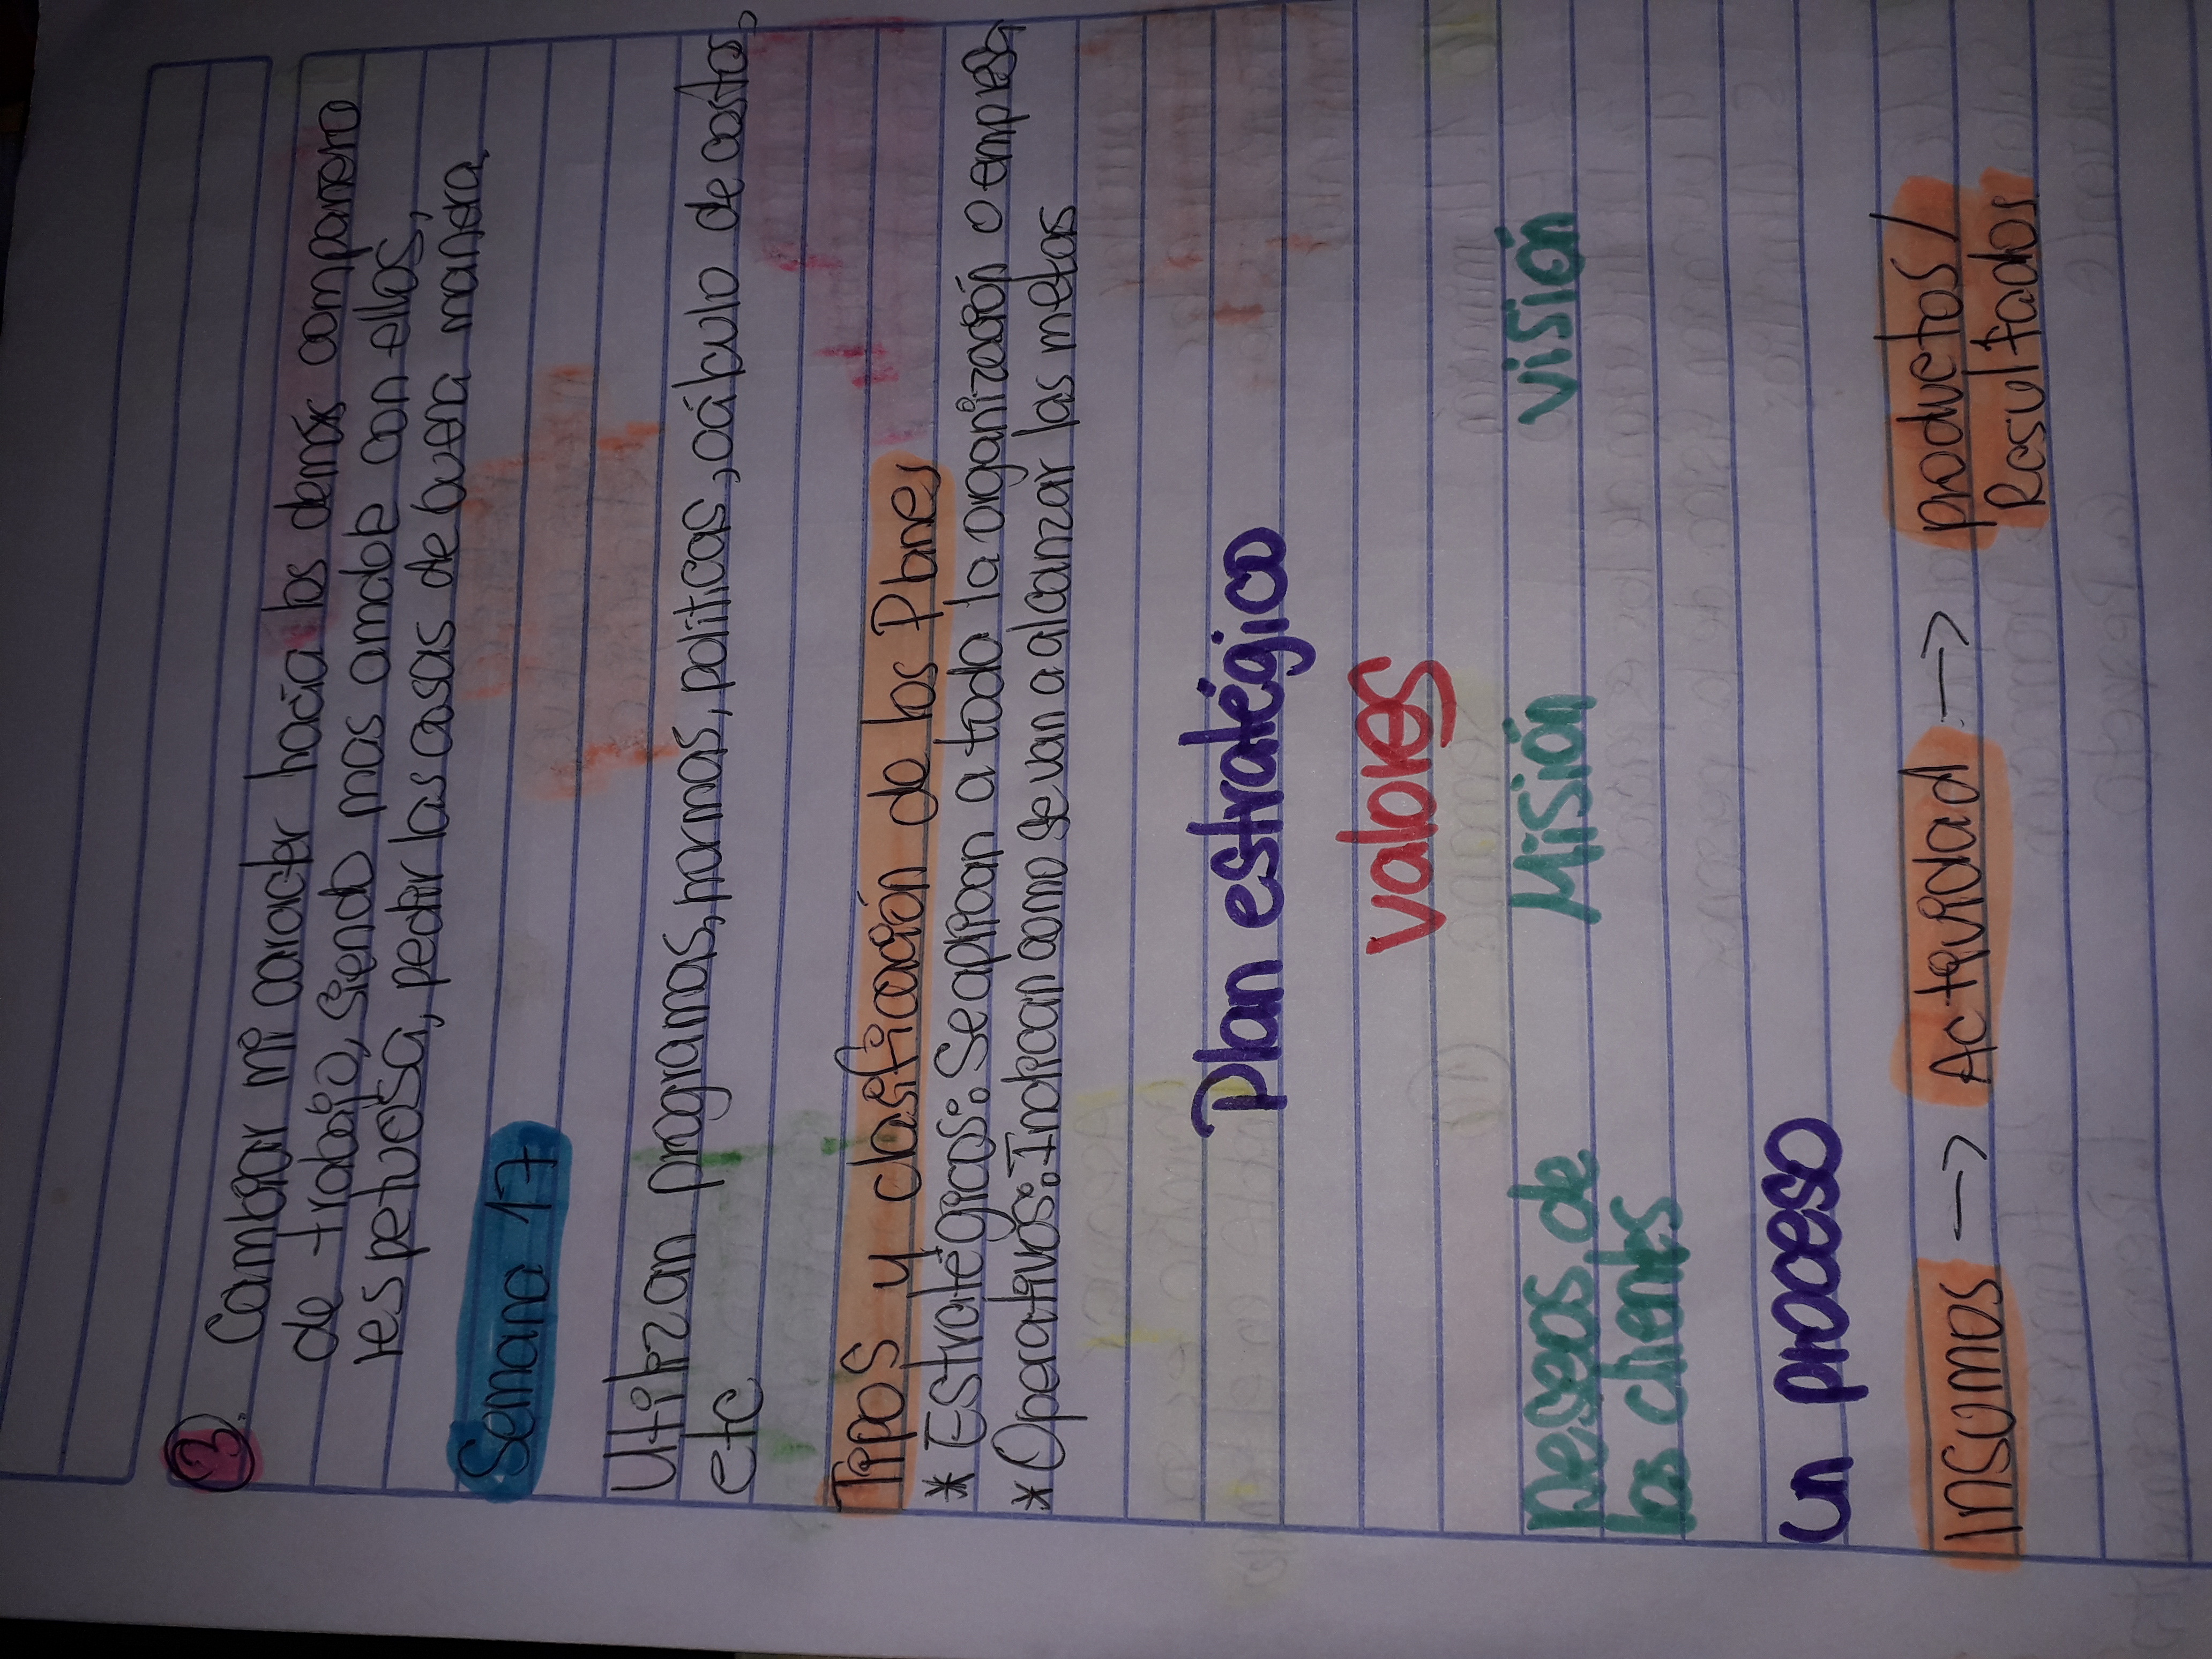 3. Cambiar mi caracter hacia los demás compañero
de trabajo, siendo mas amable con ellos,
respetuosa, pedir las cosas de buena manera.
Semana 17
Utilizan programas, normas, politicas, cálculo de costo,
etc
Tipos y clasificación de los Planes
* Estratégicos: Se aplican a toda la organización o empresa
* Operativos: Indican como se van a alcanzar las metas
Plan estratégico
valores
Deseos de Misión visión
los clientes
un proceso
Insumos -> Actividad -> productos/
Resultados